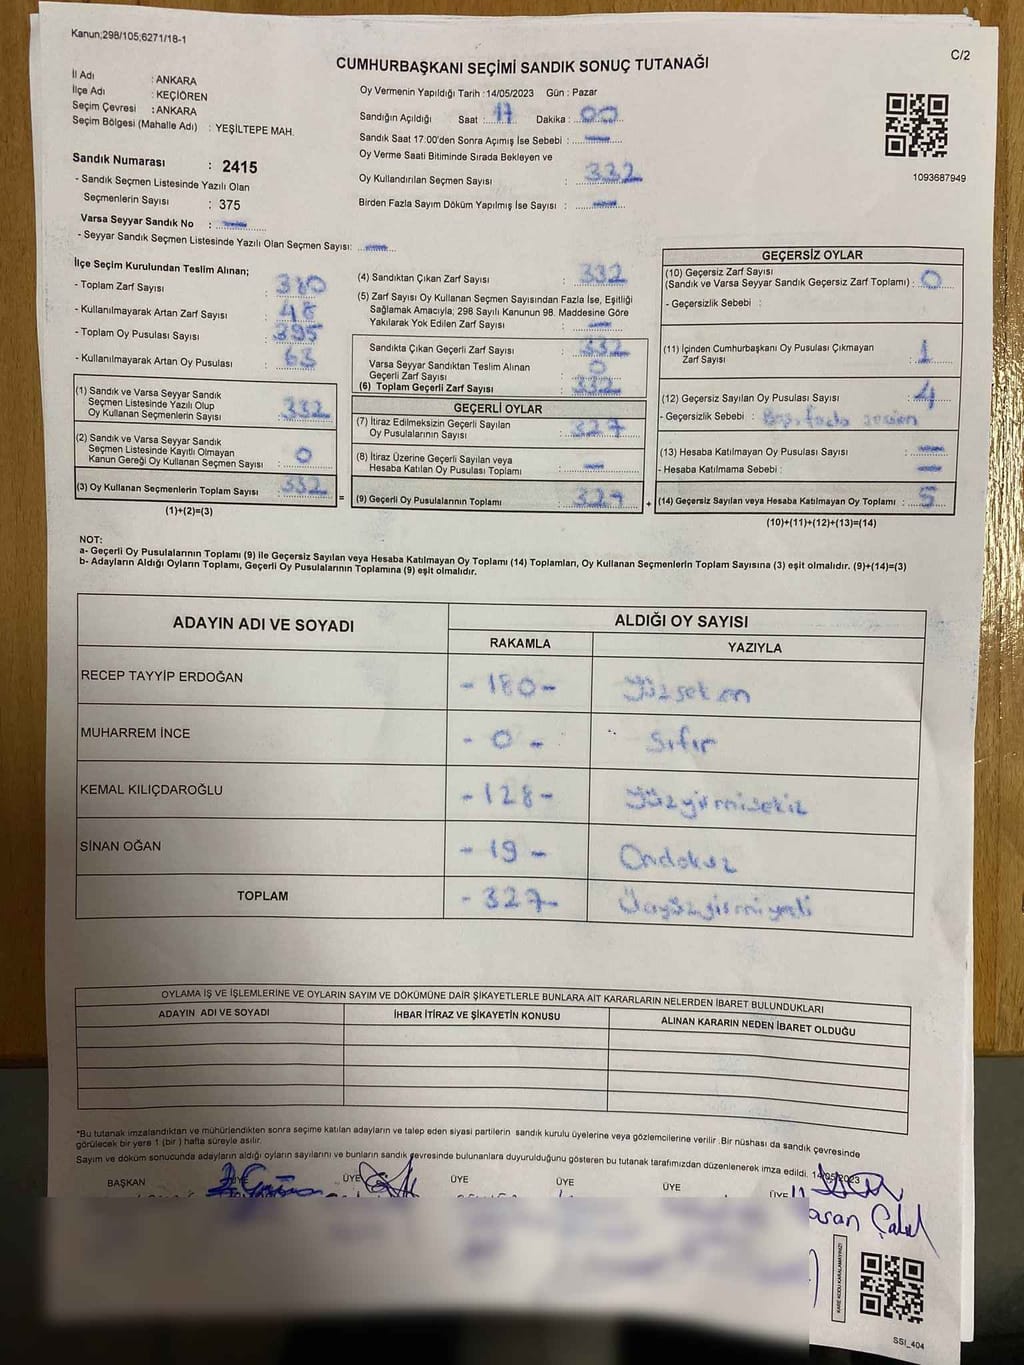 Kanun;298/105;6271/18-1
C/2
CUMHURBAŞKANI SEÇİMİ SANDIK SONUÇ TUTANAĞI
İl Adı : ANKARA
İlçe Adı : KEÇİÖREN
Seçim Çevresi : ANKARA
Seçim Bölgesi (Mahalle Adı) : YEŞİLTEPE MAH.
Sandık Numarası : 2415
- Sandık Seçmen Listesinde Yazılı Olan
Seçmenlerin Sayısı : 375
Varsa Seyyar Sandık No :
- Seyyar Sandık Seçmen Listesinde Yazılı Olan Seçmen Sayısı:
Oy Vermenin Yapıldığı Tarih :14/05/2023 Gün : Pazar
Sandığın Açıldığı Saat : 17 Dakika : 00
Sandık Saat 17.00'den Sonra Açımış İse Sebebi :
Oy Verme Saati Bitiminde Sırada Bekleyen ve
Oy Kullandırılan Seçmen Sayısı : 332
Birden Fazla Sayım Döküm Yapılmış İse Sayısı :
1093687949
İlçe Seçim Kurulundan Teslim Alınan;
- Toplam Zarf Sayısı : 380
- Kullanılmayarak Artan Zarf Sayısı : 48
- Toplam Oy Pusulası Sayısı : 395
- Kullanılmayarak Artan Oy Pusulası : 63
(1) Sandık ve Varsa Seyyar Sandık
Seçmen Listesinde Yazılı Olup
Oy Kullanan Seçmenlerin Sayısı : 332
(2) Sandık ve Varsa Seyyar Sandık
Seçmen Listesinde Kayıtlı Olmayan
Kanun Gereği Oy Kullanan Seçmen Sayısı : 0
(3) Oy Kullanan Seçmenlerin Toplam Sayısı : 332
(1)+(2)=(3)
(4) Sandıktan Çıkan Zarf Sayısı : 332
(5) Zarf Sayısı Oy Kullanan Seçmen Sayısından Fazla İse, Eşitliği
Sağlamak Amacıyla; 298 Sayılı Kanunun 98. Maddesine Göre
Yakılarak Yok Edilen Zarf Sayısı :
Sandıkta Çıkan Geçerli Zarf Sayısı : 332
Varsa Seyyar Sandıktan Teslim Alınan
Geçerli Zarf Sayısı : 0
(6) Toplam Geçerli Zarf Sayısı : 332
GEÇERLİ OYLAR
(7) İtiraz Edilmeksizin Geçerli Sayılan
Oy Pusulalarının Sayısı : 327
(8) İtiraz Üzerine Geçerli Sayılan veya
Hesaba Katılan Oy Pusulası Toplamı :
= (9) Geçerli Oy Pusulalarının Toplamı : 327 +
GEÇERSİZ OYLAR
(10) Geçersiz Zarf Sayısı
(Sandık ve Varsa Seyyar Sandık Geçersiz Zarf Toplamı) : 0
- Geçersizlik Sebebi :
(11) İçinden Cumhurbaşkanı Oy Pusulası Çıkmayan
Zarf Sayısı : 1
(12) Geçersiz Sayılan Oy Pusulası Sayısı : 4
- Geçersizlik Sebebi :
(13) Hesaba Katılmayan Oy Pusulası Sayısı :
- Hesaba Katılmama Sebebi :
(14) Geçersiz Sayılan veya Hesaba Katılmayan Oy Toplamı : 5
(10)+(11)+(12)+(13)=(14)
NOT:
a- Geçerli Oy Pusulalarının Toplamı (9) ile Geçersiz Sayılan veya Hesaba Katılmayan Oy Toplamı (14) Toplamları, Oy Kullanan Seçmenlerin Toplam Sayısına (3) eşit olmalıdır. (9)+(14)=(3)
b- Adayların Aldığı Oyların Toplamı, Geçerli Oy Pusulalarının Toplamına (9) eşit olmalıdır.
ADAYIN ADI VE SOYADI ALDIĞI OY SAYISI
RAKAMLA YAZIYLA
RECEP TAYYİP ERDOĞAN - 180 - Yüzseksen
MUHARREM İNCE - 0 - Sıfır
KEMAL KILIÇDAROĞLU - 128 - Yüzyirmisekiz
SİNAN OĞAN - 19 - Ondokuz
TOPLAM - 327 - Üçyüzyirmiyedi
OYLAMA İŞ VE İŞLEMLERİNE VE OYLARIN SAYIM VE DÖKÜMÜNE DAİR ŞİKAYETLERLE BUNLARA AİT KARARLARIN NELERDEN İBARET BULUNDUKLARI
ADAYIN ADI VE SOYADI İHBAR İTİRAZ VE ŞİKAYETİN KONUSU ALINAN KARARIN NEDEN İBARET OLDUĞU
*Bu tutanak imzalandıktan ve mühürlendikten sonra seçime katılan adayların ve talep eden siyasi partilerin sandık kurulu üyelerine veya gözlemcilerine verilir .Bir nüshası da sandık çevresinde
görülecek bir yere 1 (bir ) hafta süreyle asılır.
Sayım ve döküm sonucunda adayların aldığı oyların sayılarını ve bunların sandık çevresinde bulunanlara duyurulduğunu gösteren bu tutanak tarafımızdan düzenlenerek imza edildi. 14/05/2023
BAŞKAN ÜYE ÜYE ÜYE ÜYE ÜYE ÜYE
KARE KODU KARALAMAYINIZ!
SSI_404